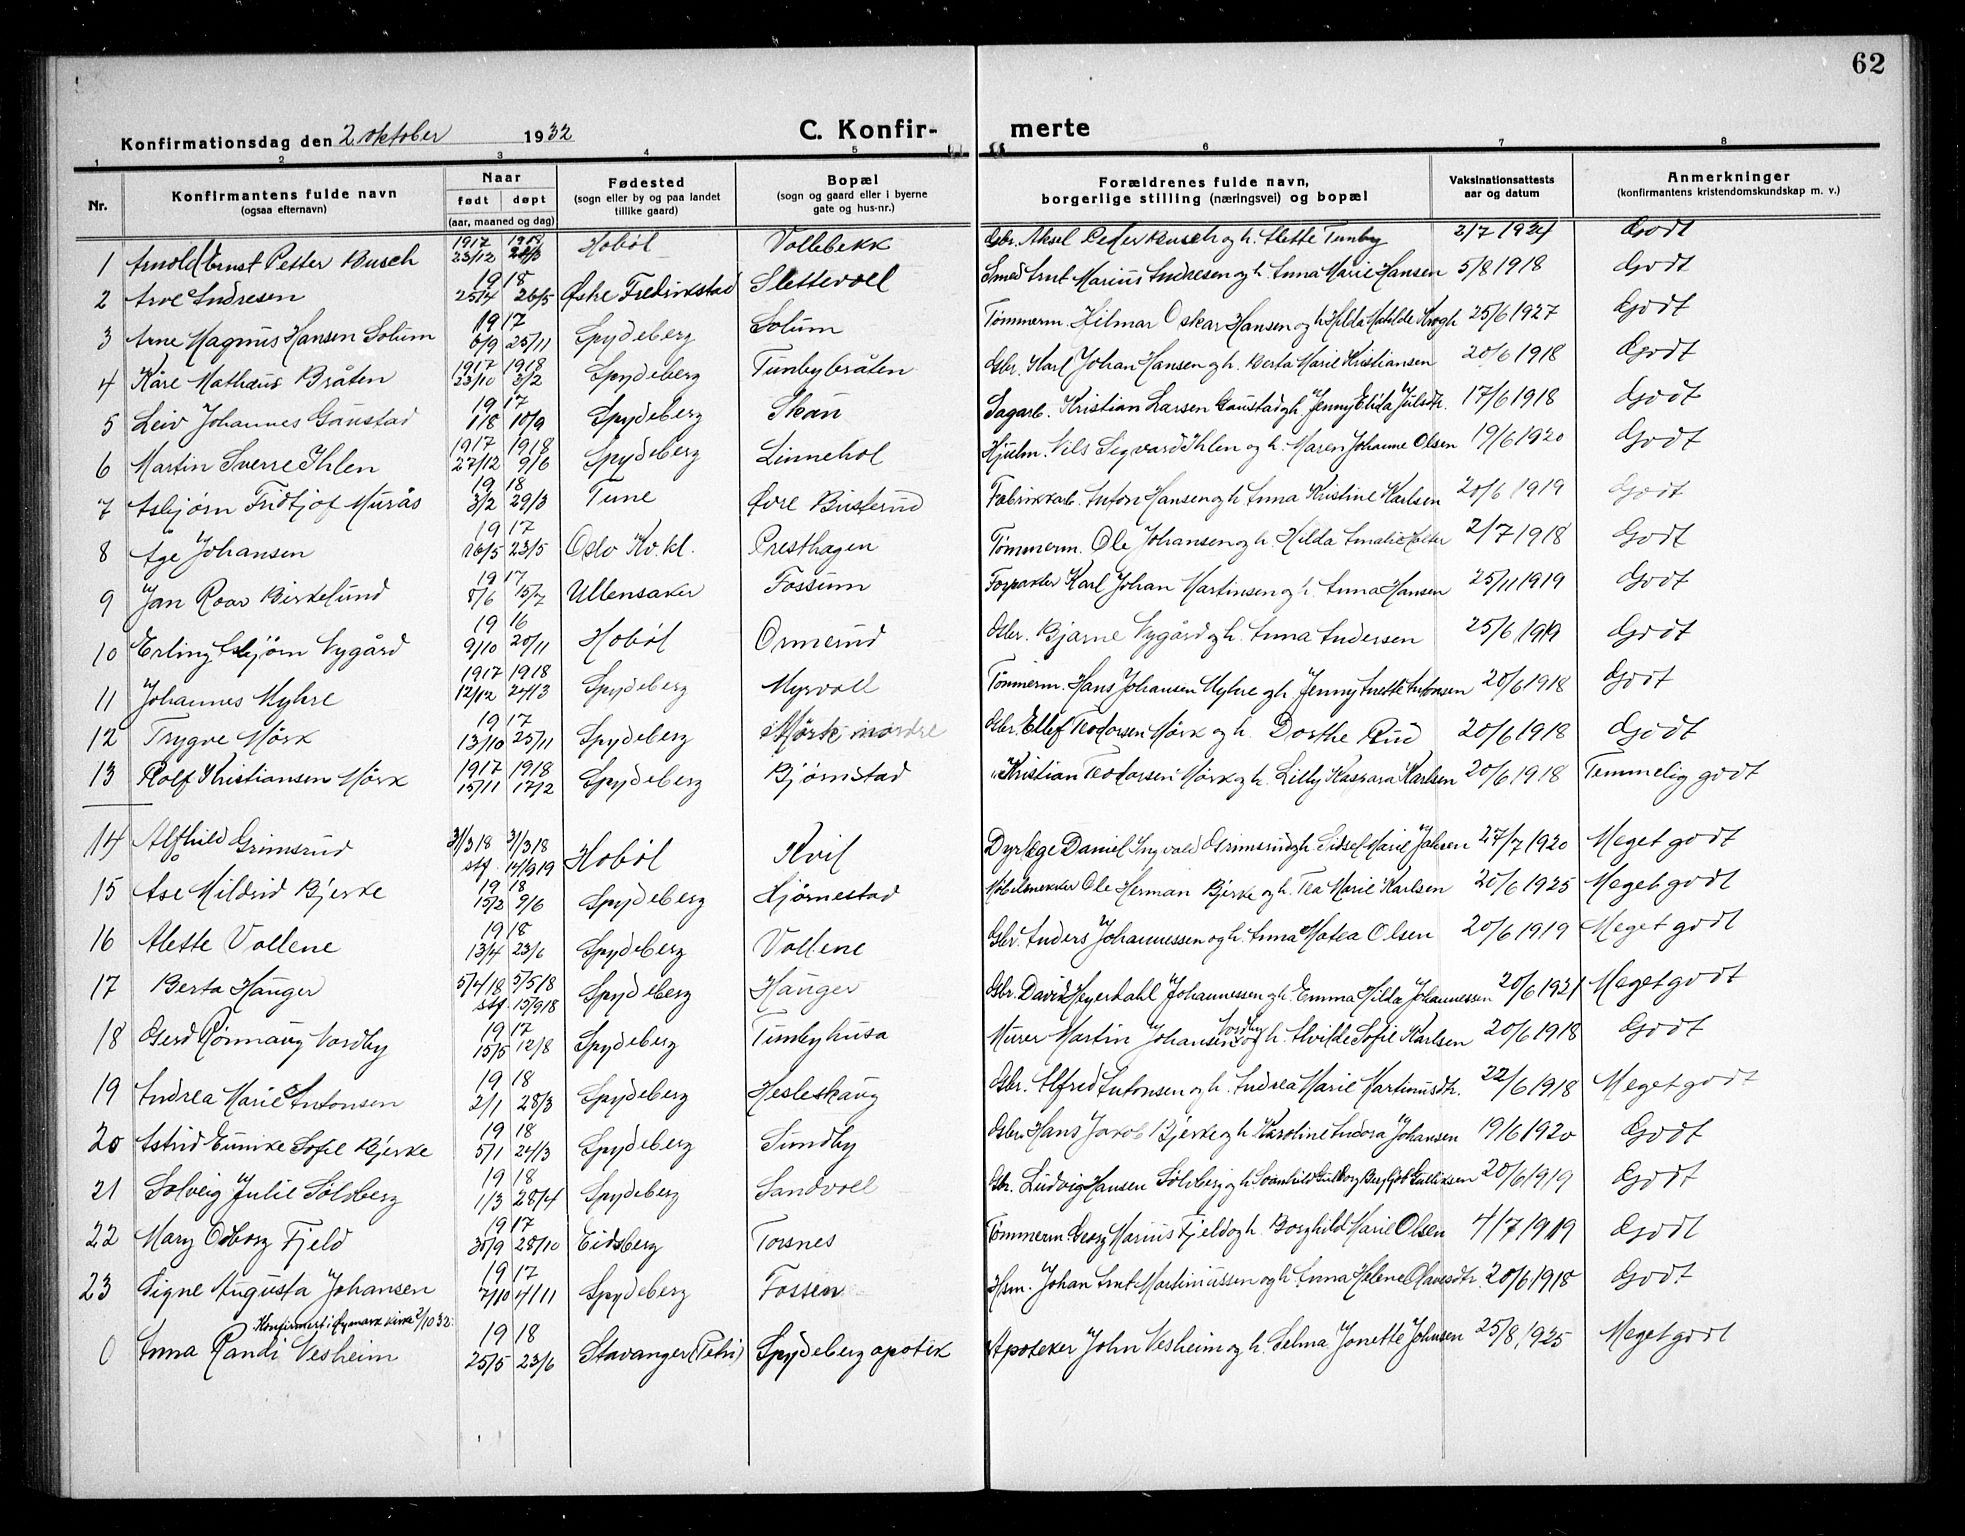 62
Konfirmationsdag den 2 oktober 1932
C. Konfir- merte
1 2 3 4 5 6 7 8
Nr. Konfirmantens fulde navn (ogsaa efternavn) Naar født døpt (aar, maaned og dag) Fødested (sogn eller by og paa landet tillike gaard) Bopæl (sogn og gaard eller i byerne gate og hus-nr.) Forældrenes fulde navn, borgerlige stilling (næringsvei) og bopæl Vaksinationsattests aar og datum Anmerkninger (konfirmantens kristendomskundskap m. v.)
1 Arnold Ernst Petter Busch 1917 23/12 Hobøl Vollebekk Gbr. Aksel Peder Busch og h. Alette Tunby 2/7 1924 Godt
2 Arve Andresen 1918 25/4 26/5 Østre Fredrikstad Slettevoll Smed Arnt Marius Andresen og h. Anna Marie Hansen 5/8 1918 Godt
3 Arne Magnus Hansen Solum 1917 6/9 25/11 Spydeberg Solum Tømmerm. Hilmar Oskar Hansen og h. Hilda Matilde Krogh 25/6 1927 Godt
4 Kåre Mathæus Bråten 1917 23/10 1918 3/2 Spydeberg Tunbybråten Gbr. Karl Johan Hansen og h. Berta Marie Kristiansen 20/6 1918 Godt
5 Leiv Johannes Gaustad 1917 1/8 10/9 Spydeberg Skau Sagarb. Kristian Larsen Gaustad og h. Jenny Elida Julsdtr. 17/6 1918 Godt
6 Martin Sverre Ihlen 1917 27/12 1918 9/6 Spydeberg Linnehol Hjulm. Nils Sigvard Ihlen og h. Maren Johanne Olsen 19/6 1920 Godt
7 Asbjørn Fridtjof Murås 1918 3/2 29/3 Tune Øvre Busterud Fabrikkarb. Anton Hansen og h. Anna Kristine Karlsen 20/6 1919 Godt
8 Åge Johansen 1917 16/5 23/5 Oslo Kv.kl. Presthagen Tømmerm. Ole Johansen og h. Hilda Amalie Holter 2/7 1918 Godt
9 Jan Roar Birkelund 1917 8/6 15/7 Ullensaker Fossum Forpakter Karl Johan Martinsen og h. Anna Hansen 25/11 1919 Godt
10 Erling Asbjørn Nygård 1916 9/10 20/11 Hobøl Ormerud Gbr. Bjarne Nygård og h. Anna Andersen 25/6 1919 Godt
11 Johannes Myhre 1917 12/12 1918 24/3 Spydeberg Myrvoll Tømmerm. Hans Johansen Myhre og h. Jenny Anette Antonsen 20/6 1918 Godt
12 Trygve Mørk 1917 13/10 25/11 Spydeberg Mørk nordre Gbr. Ellef Teodorsen Mørk og h. Dorthe Rud 20/6 1918 Godt
13 Rolf Kristiansen Mørk 1917 15/11 1918 17/2 Spydeberg Bjørnstad " Kristian Teodorsen Mørk og h. Lilly Kaspara Karlsen 20/6 1918 Temmelig godt
14 Alfhild Grimsrud 31/3 18 31/3 18 stf. 14/9 19 Hobøl Kvil Dyrlæge Daniel Ingvald Grimsrud og h. Sidsel Marie Jahren 27/7 1920 Meget godt
15 Åse Mildrid Bjerke 1918 15/2 9/6 Spydeberg Hjørnestad Møbelsnekker Ole Herman Bjerke og h. Tea Marie Karlsen 20/6 1925 Meget godt
16 Alette Vollene 1918 13/4 23/6 Spydeberg Vollene Gbr. Anders Johannessen og h. Anna Matea Olsen 20/6 1919 Meget godt
17 Berta Hauger 5/4 18 5/5 18 stf 15/9 18 Spydeberg Hauger Gbr. David Heyerdahl Johannessen og h. Emma Hilda Johannessen 20/6 1921 Meget godt
18 Gerd Rønnaug Nordby 1917 15/5 12/8 Spydeberg Tunbyhusa Murer Martin Johansen Nordby og h. Alvilde Sofie Karlsen 20/6 1918 Godt
19 Andrea Marie Antonsen 1918 2/1 28/3 Spydeberg Hesleskaug Gbr. Alfred Antonsen og h. Andrea Marie Martinusdtr. 22/6 1918 Meget godt
20 Astrid Eunike Sofie Bjerke 1918 5/1 24/3 Spydeberg Sundby Gbr. Hans Jakob Bjerke og h. Karoline Andora Johansen 19/6 1920 Godt
21 Solveig Julie Solberg 1918 1/3 28/4 Spydeberg Sandvoll Gbr. Ludvig Hansen Solberg og h. Gulliksen 20/6 1919 Godt
22 Mary Odborg Fjeld 1917 30/9 28/10 Eidsberg Torsnes Tømmerm. Georg Marius Fjeld og h. Borghild Marie Olsen 4/7 1919 Godt
23 Signe Augusta Johansen 1917 7/10 4/11 Spydeberg Fossen Hsm. Johan Arnt Martiniussen og h. Anna Helene Olavesdtr. 20/6 1918 Godt
Konfirmert i Rymark kirke 2/10 32.
0 Anna Randi Vesheim 1918 25/5 23/6 Stavanger (Petri) Spydeberg apotek Apoteker John Vesheim og h. Selma Jonette Johnsen 25/8 1925 Meget godt